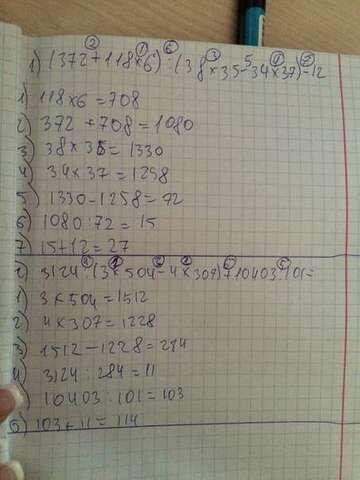 1) (372+118×6):(38×35-34×37)-12
1) 118×6=708
2) 372+708=1080
3) 38×35=1330
4) 34×37=1258
5) 1330-1258=72
6) 1080:72=15
7) 15+12=27
2) 3124:(3×504-4×307)+10403:101=
1) 3×504=1512
2) 4×307=1228
3) 1512-1228=284
4) 3124:284=11
10403:101=103
6) 103+11=114